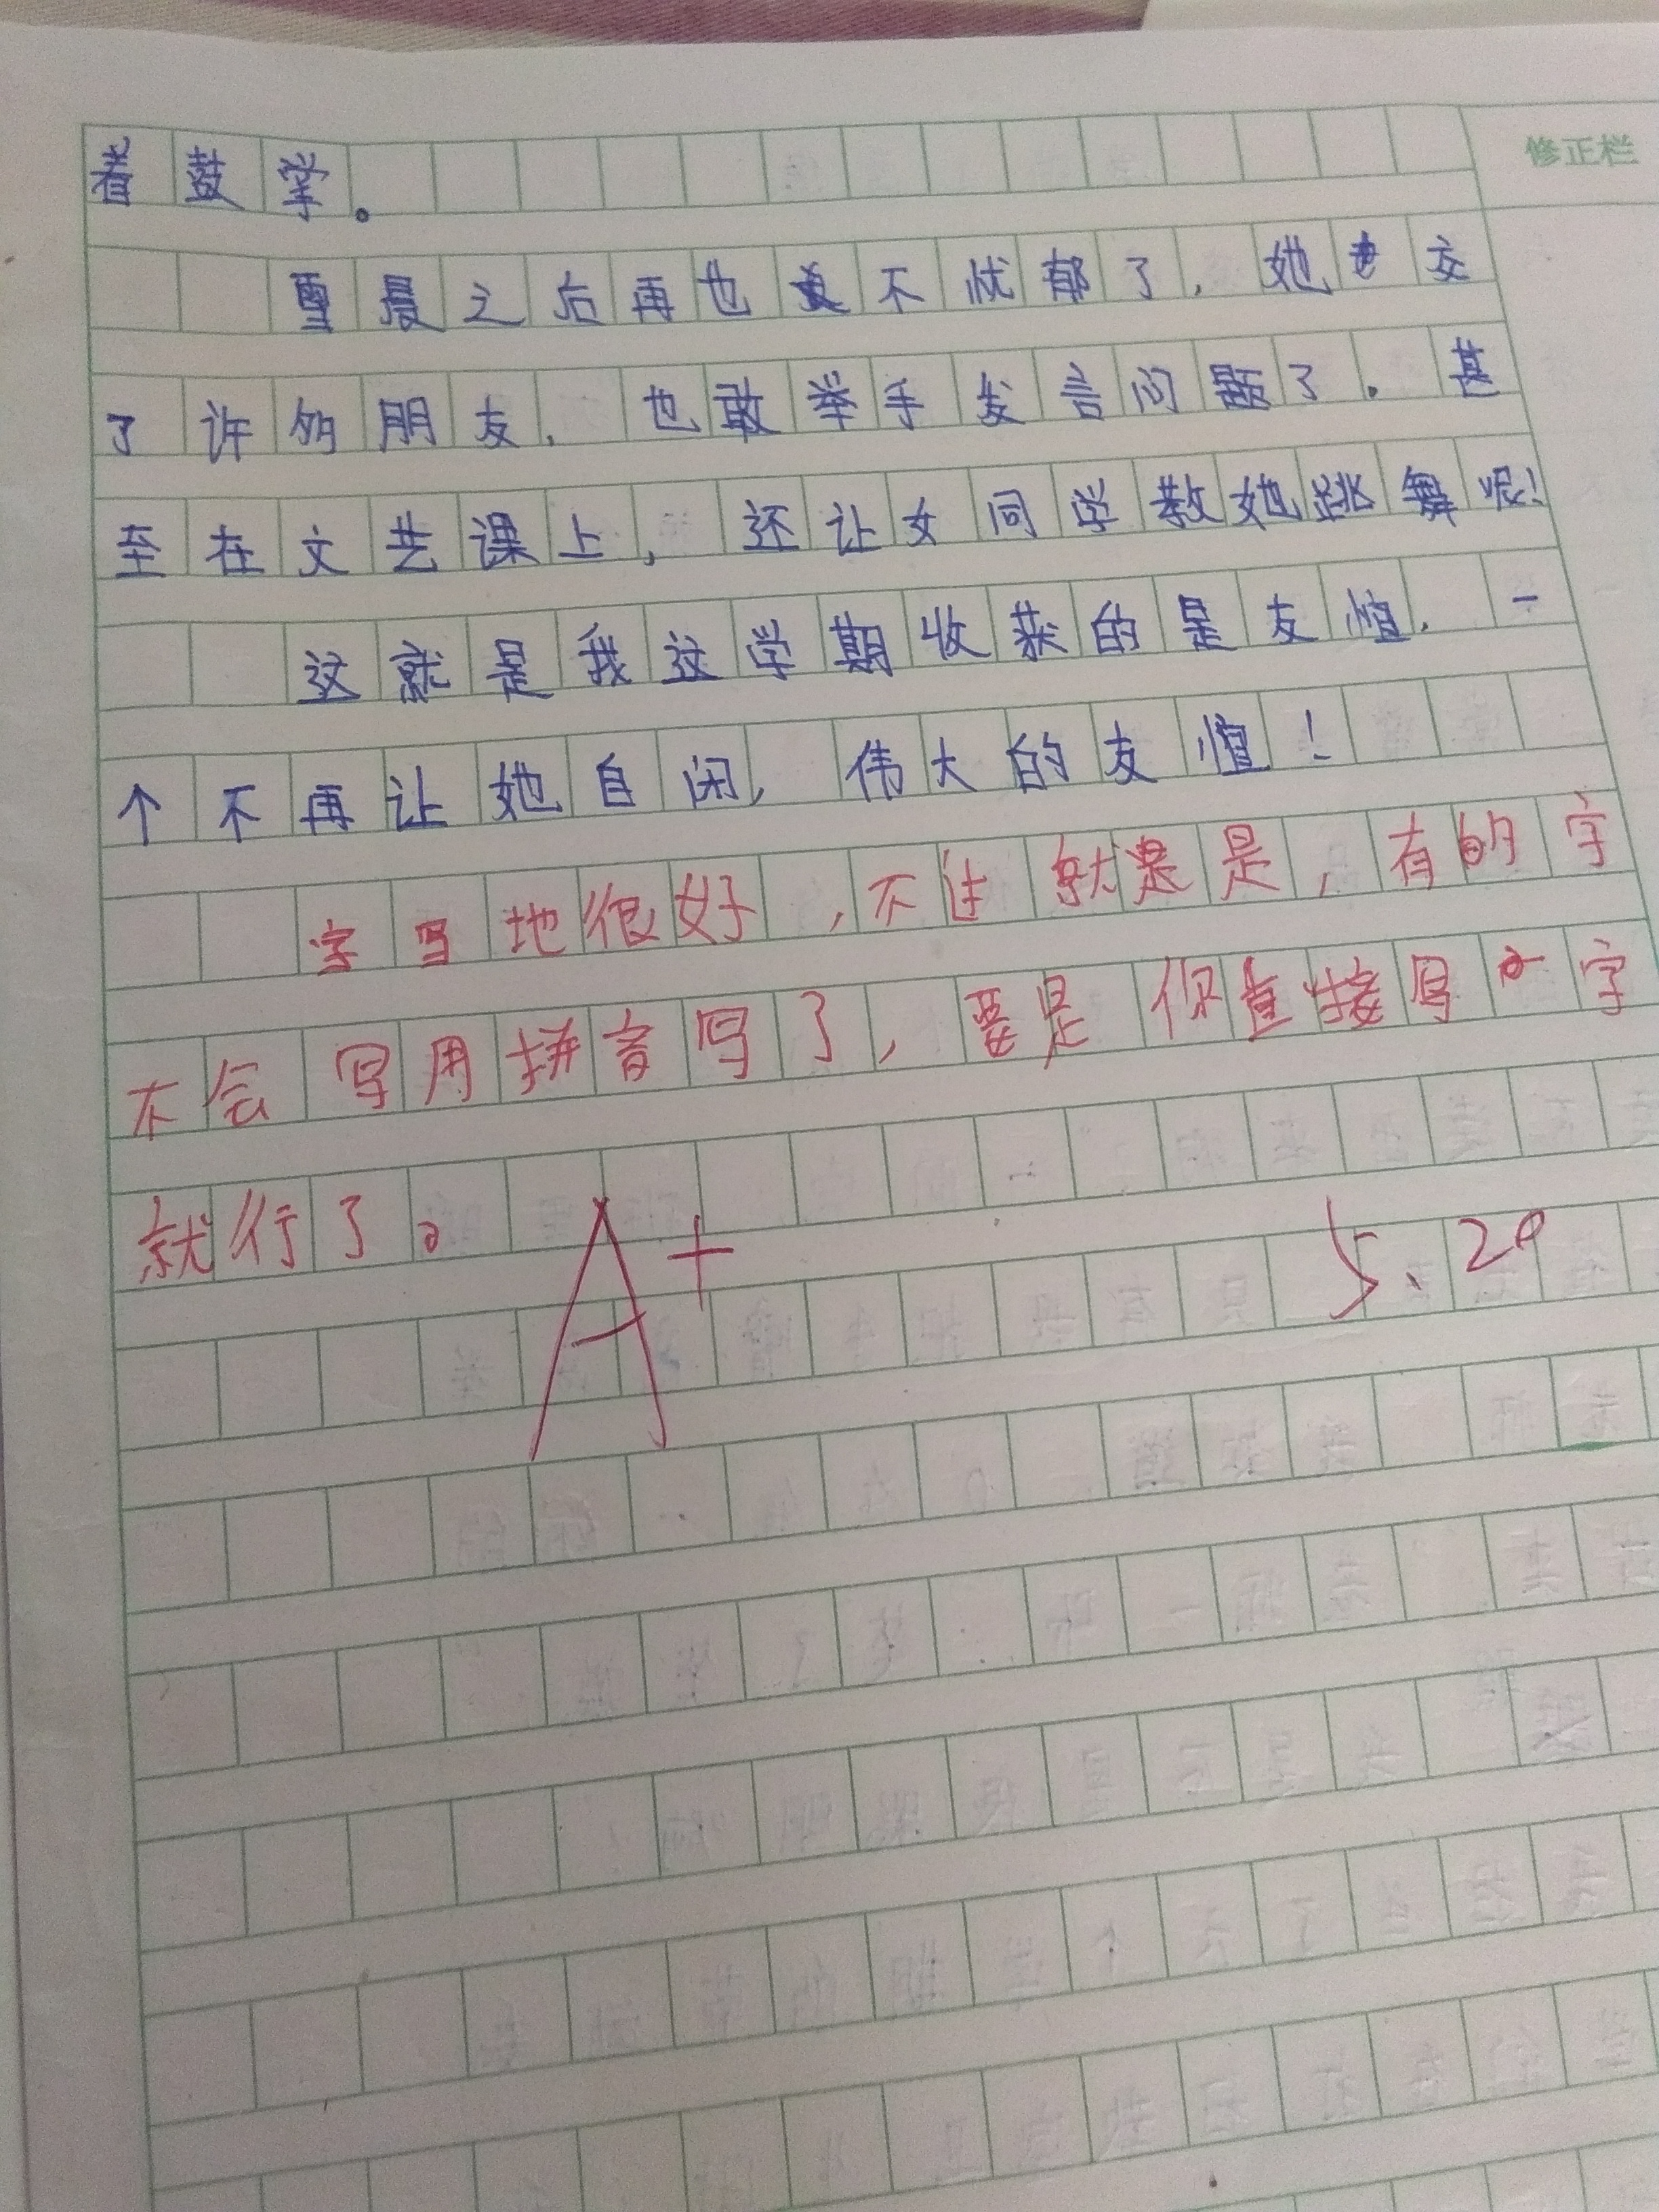 修正栏
着鼓掌。
雪晨之后再也不忧郁了，她交
了许的朋友，也敢举手发言问题了。甚
至在文艺课上，还让女同学教她跳舞呢！
这就是我这学期收获的是友谊，一
个不再让她自闭，伟大的友谊！
字写地很好，不过就是是，有的字
不会写用拼音写了，要是你直接写个字
就行了。
A+ 5.20